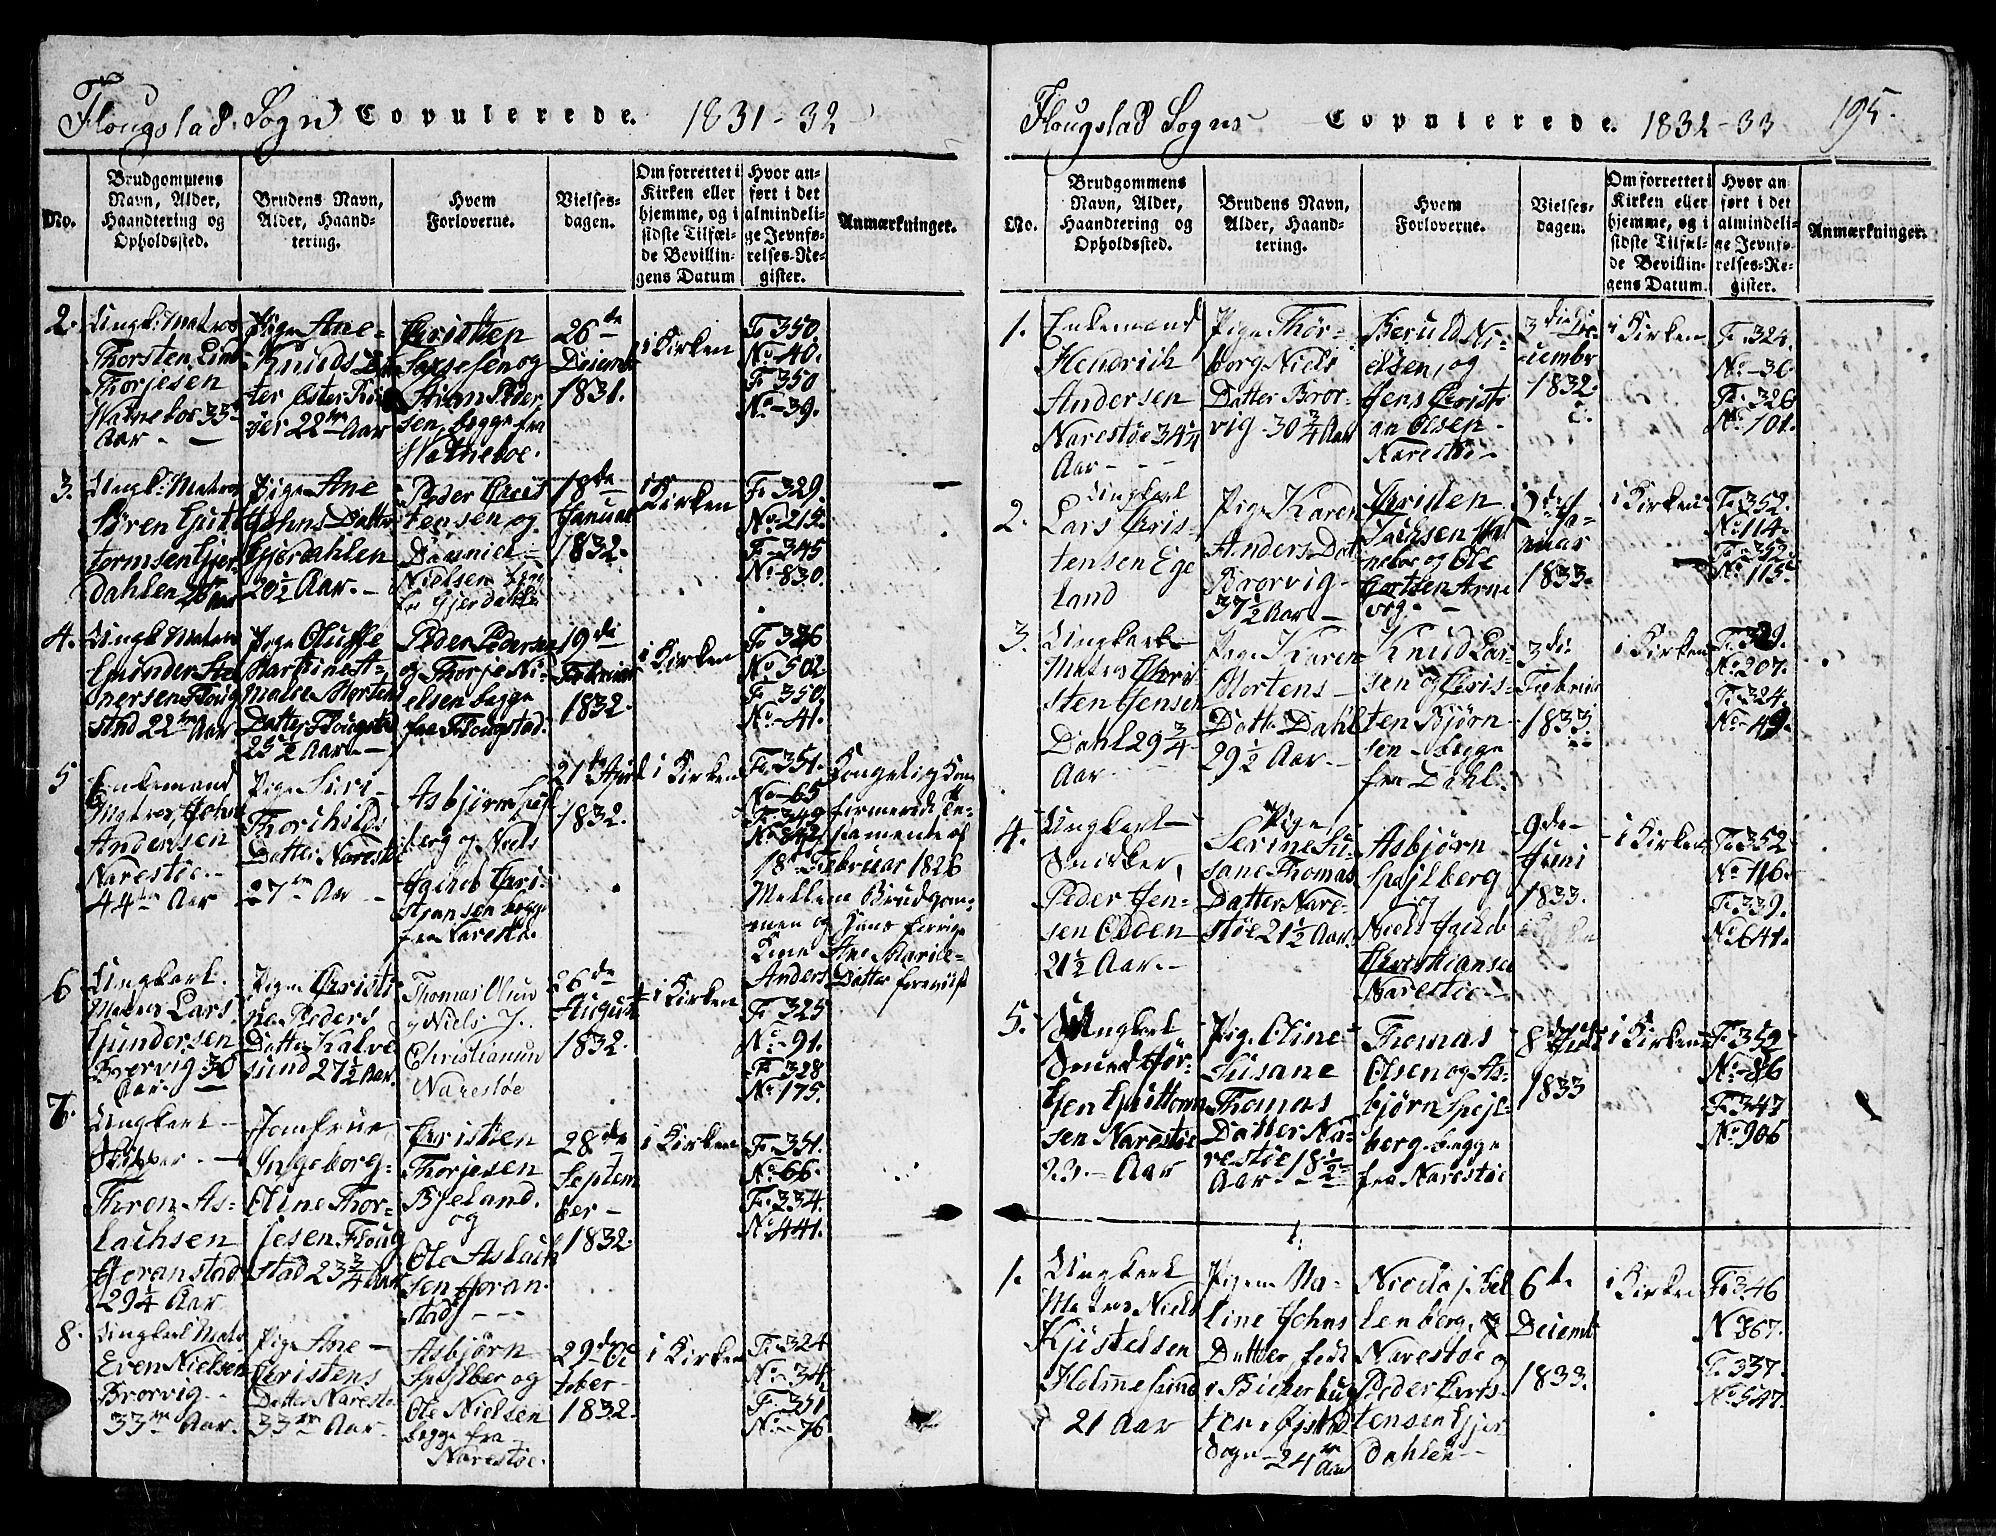 Flougstad Sogn Copulerede. 1831-32
No.
Brudgommens
Navn, Alder,
Haandtering og
Opholdssted.
Brudens Navn,
Alder, Haand-
tering.
Hvem
Forloverne.
Vielses-
dagen.
Om forrettet i
Kirken eller
hjemme, og i
sidste Tilfæl-
de Bevillin-
gens Datum
Hvor an-
ført i det
almindeli-
ge Jevnfø-
relses-Re-
gister.
Anmærkninger.
2.
Ungk: Matros
Thorsten
Thorjesen
Hatneboe 33
Aar
Pige Ane
Knuds
ter Øster Riis
øer 22 Aar
Christen
og
Peder
sen, begge fra
Hatneboe.
26de
Decemb
1831.
i Kirken
F. 350.
No 40.
F. 350
No 39.
3.
Ungk: Matros
Søren Gut
tormsen Gjer
Dahlen Aar
Pige Ane
Johns Datter
Gjerdahlen
20½ Aar.
Peder Chris
tensen og
Danniel
Nielsen
fra Gjerdahle
18de
Januar
1832.
i
Kirken
F. 329.
No 215.
F. 345
No 830.
4.
Ungk Matros
Gunder
nersen Floug
stad 22 Aar
Pige Oluffe
Bartine A-
malie Mortens
Datter Flougstad
25½ Aar.
Peder Pedersen
og Thorje Ni-
elsen begge
fra Flougstad.
19de
Februar
1832.
i Kirken
F. 336
No 502
F. 350
No 41.
5
Enkemand
Matros, John
Andersen
Narestøe
44 Aar
Pige Siri
Thorchilds
Datter Narestø
27 Aar
Asbjørn Spejl
berg og Niels
Jacob Chri-
stjansen begge
fra Narestø.
21de April
1832.
i Kirken
F. 351.
No 65
F. 349
Kongelig Con
firmered Te-
stamente af
18 Februar 1826
Mellem Brudgom-
men og Hans forrige
Kone Ane Marie
Anders Datter forevist
6
Ungkarl.
Matros Lars
Gundersen
Brorvig 30
Aar.
Pige Christi
ne Peders
Datter Kalve
sund 27½ Aar.
Thomas Olsen
og Niels J.
Christiansen
Narestøe
26de
August
1832.
i Kirken
F. 325
No 91.
F. 328
No 175.
7.
Ungkarl
Skipper
Thron As-
lachsen
Joranstad
29¼ Aar
Jomfrue
Ingeborg
Oline Thor-
jesen Floug
stad 23¾ Aar
Christen
Thorjesen
Bjeland.
og
Ole Aslach
sen Joran
stad
28de
Septem
ber
1832.
i Kirken
F. 351.
No 66
F. 334.
No 441.
8.
Ungkarl Matr.
Even Nielsen
Brorvig
33 Aar.
Pige Ane
Christens
Datter Narestø
33 Aar.
Asbjørn
Spejlber og
Ole Nielsen
begge fra
Narestøe.
29de Oc
tober
1832.
i Kirken
F. 324
No 34
F. 351
No 76
Flougstad Sogns Copulerede. 1832-33 195.
No.
Brudgommens
Navn, Alder,
Haandtering og
Opholdssted.
Brudens Navn,
Alder, Haand-
tering.
Hvem
Forloverne.
Vielses-
dagen.
Om forrettet i
Kirken eller
hjemme, og i
sidste Tilfæl-
de Bevillin-
gens Datum.
Hvor an
ført i det
almindeli-
ge Jevnfø-
relses-Re-
gister.
Anmærkninger.
1.
Enkemand
Hendrich
Andersen
Narestøe 34¼
Aar
Pige Thør-
borg Niels
Datter Bror-
vig 30¾ Aar
Beruld Ni-
elsen, og
Jens Christi
an Olsen
Narestø
3die De
cembr
1832.
i Kirken
F. 324.
No 36.
F. 326
No 101.
2.
Ungkarl
Lars Chris-
tensen Ege
land
Pige Karen
Anders Dat
Brorvig
37½ Aar
Christen
Jachsen Hat
neboe og Ole
Arne
vig.
Ja-
nuar
1833.
i Kirken
F. 352.
No 114.
F. 352
No 115.
3.
Ungkarl
Matros Chri
sten Jensen
Dahl 29¾
Aar
Pige Karen
Mortens
Datte Dahl
29½ Aar
Knud Lar-
sen og Chris-
ten Bjørn
sen begge
fra Dahl.
3die
Februar
1833.
i Kirken
F. 329.
No 207.
F. 324.
No 49.
4.
Ungkarl
Snidker,
Peder Jen-
sen Odden
21½ Aar.
Pige
Serine Su-
sane Thomas
Datter Nare-
støe 21½ Aar.
Asbjørn
Spejlberg
og
Niels Jacob
Christiansen
Narestøe
9de
Juni
1833.
i Kirken
F. 352
No 116.
F. 339.
No 641.
5.
Ungkarl
Smed Jør-
gen Guttorm
sen Narestøe
23 Aar
Pige Oline
Susane
Thomas
Datter Na-
restøe 18½
Aar.
Thomas
Olsen og As-
bjørn Spejl-
berg begge
fra Narestøe
8de Juli
1833
i Kirken
F. 352
No 86
F. 347
No 906
1.
1.
Ungkarl
Matros Niels
Kjøstelsen
Holmesund
21 Aar
Pigen Ma-
line Johns
Datter, født
i
ter i Øjestad
Sogn 24 Aar
Nicolaj Bel
lenberg,
Narestøe og
Peder Chris-
tensen Gjer
dahlen
6te
Decemb
1833.
i Kirken
F. 346
No 867.
F. 337
No 547.